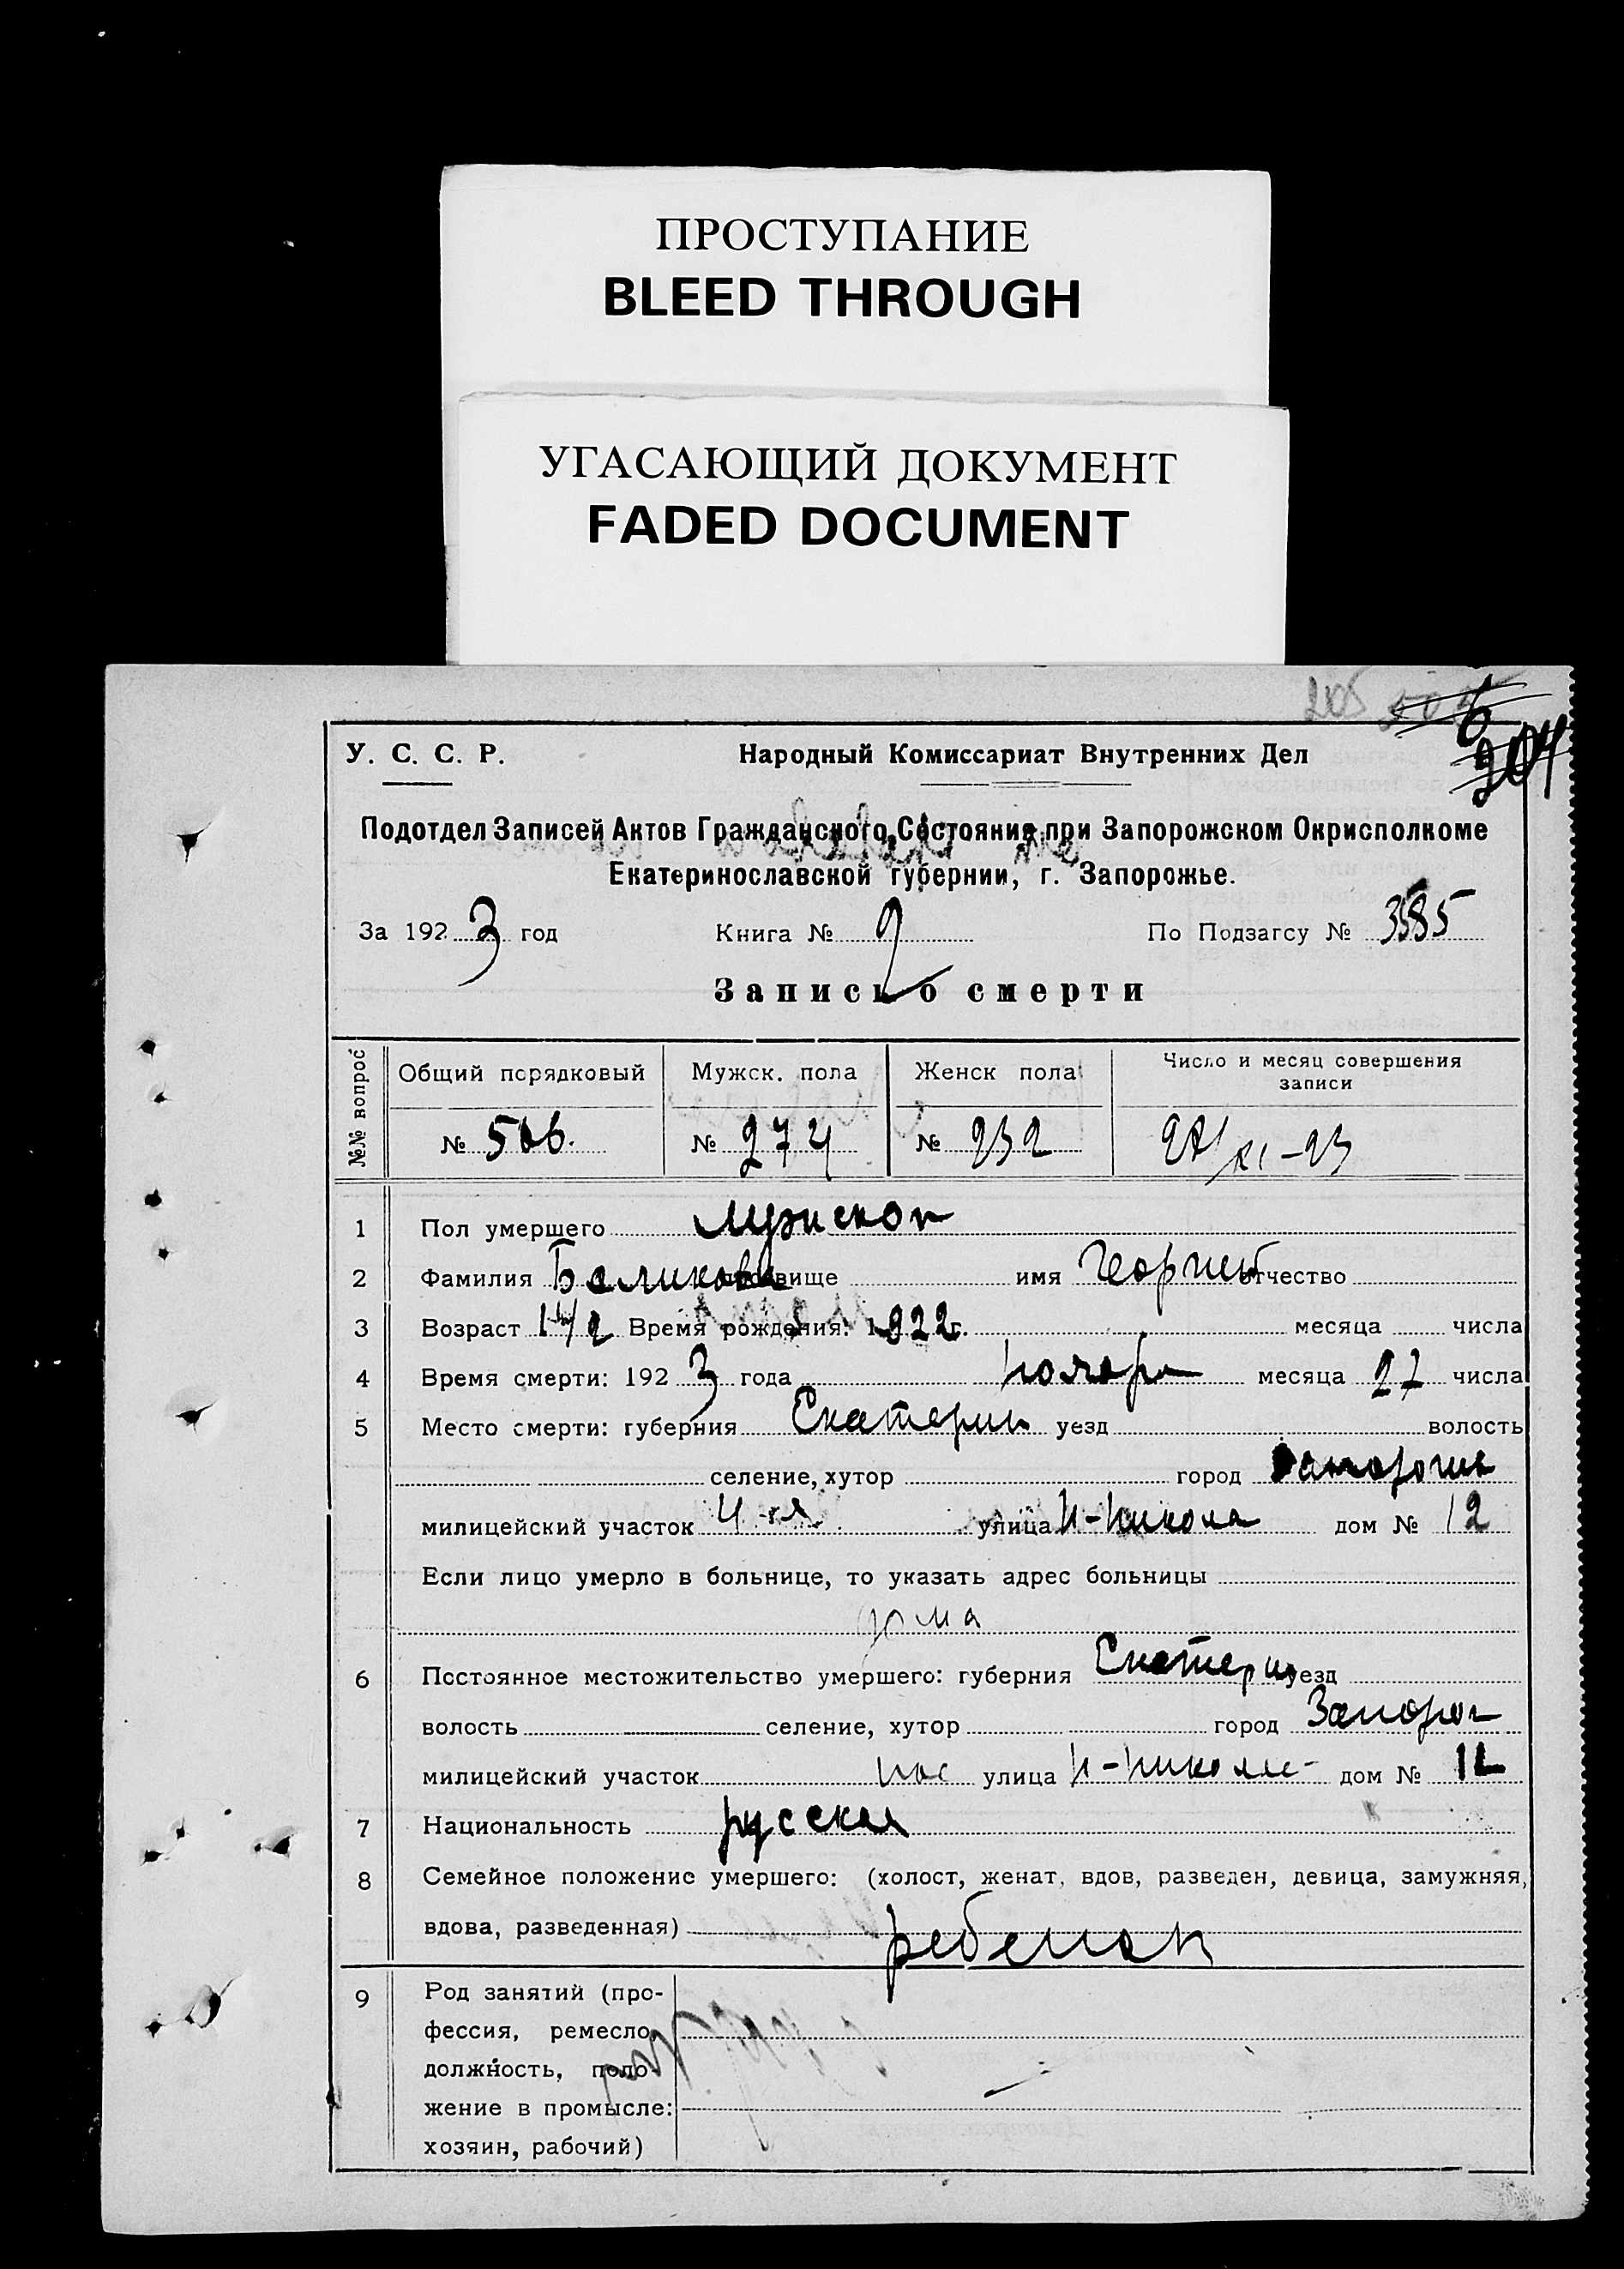 ПРОСТУПАНИЕ
BLEED THROUGH
УГАСАЮЩИЙ ДОКУМЕНТ
FADED DOCUMENT
205
204
У. С. С. Р. Народный Комиссариат Внутренних Дел
Подотдел Записей Актов Гражданского Состояния при Запорожском Окрисполкоме
Екатеринославской губернии, г. Запорожье.
За 1923 год Книга № 2 По Подзагсу № 3585
Запись о смерти
№№ вопрос
Общий порядковый Мужск. пола Женск пола Число и месяц совершения записи
№ 506. № 274 № 232 27/XI-23
1 Пол умершего мужской
2 Фамилия прозвище имя Георгий отчество
3 Возраст 1 1/2 Время рождения: 1922г. месяца числа
4 Время смерти: 1923 года ноября месяца 27 числа
5 Место смерти: губерния Екатерин уезд волость
селение, хутор город Запорожье
милицейский участок 4-й улица Н-Никола дом № 12
Если лицо умерло в больнице, то указать адрес больницы
дома
6 Постоянное местожительство умершего: губерния Екатерин уезд
волость селение, хутор город Запорож
милицейский участок улица дом № 12
7 Национальность русская
8 Семейное положение умершего: (холост, женат, вдов, разведен, девица, замужняя,
вдова, разведенная) ребенок
9 Род занятий (про-
фессия, ремесло,
должность, поло-
жение в промысле:
хозяин, рабочий) —